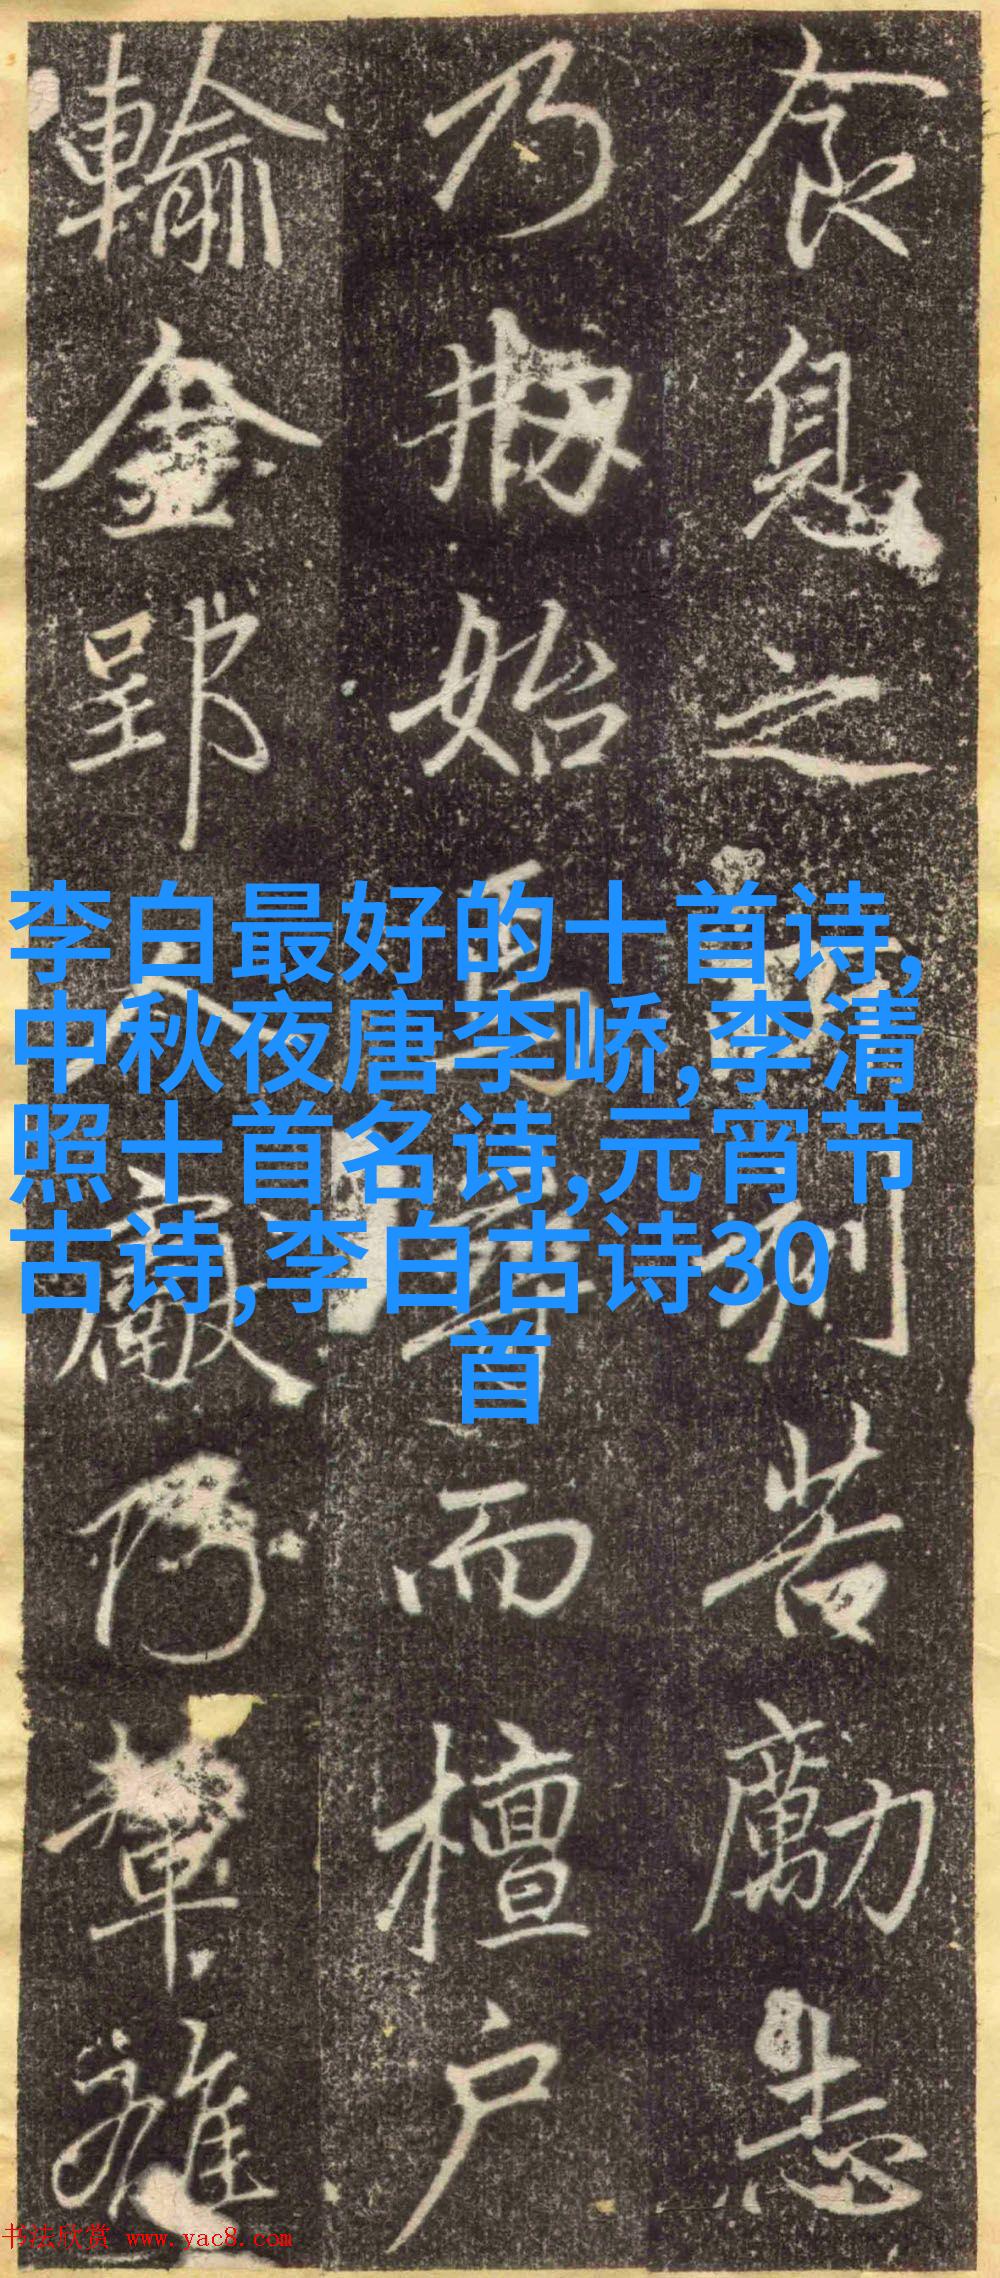 食息之刻苦勵志
乃始焉而檀户
輸金郢人乃雜
李白最好的十首诗,
中秋夜唐李峤,李清
照十首名诗,元宵节
古诗,李白古诗30
首
书法欣赏 www.yac8.com